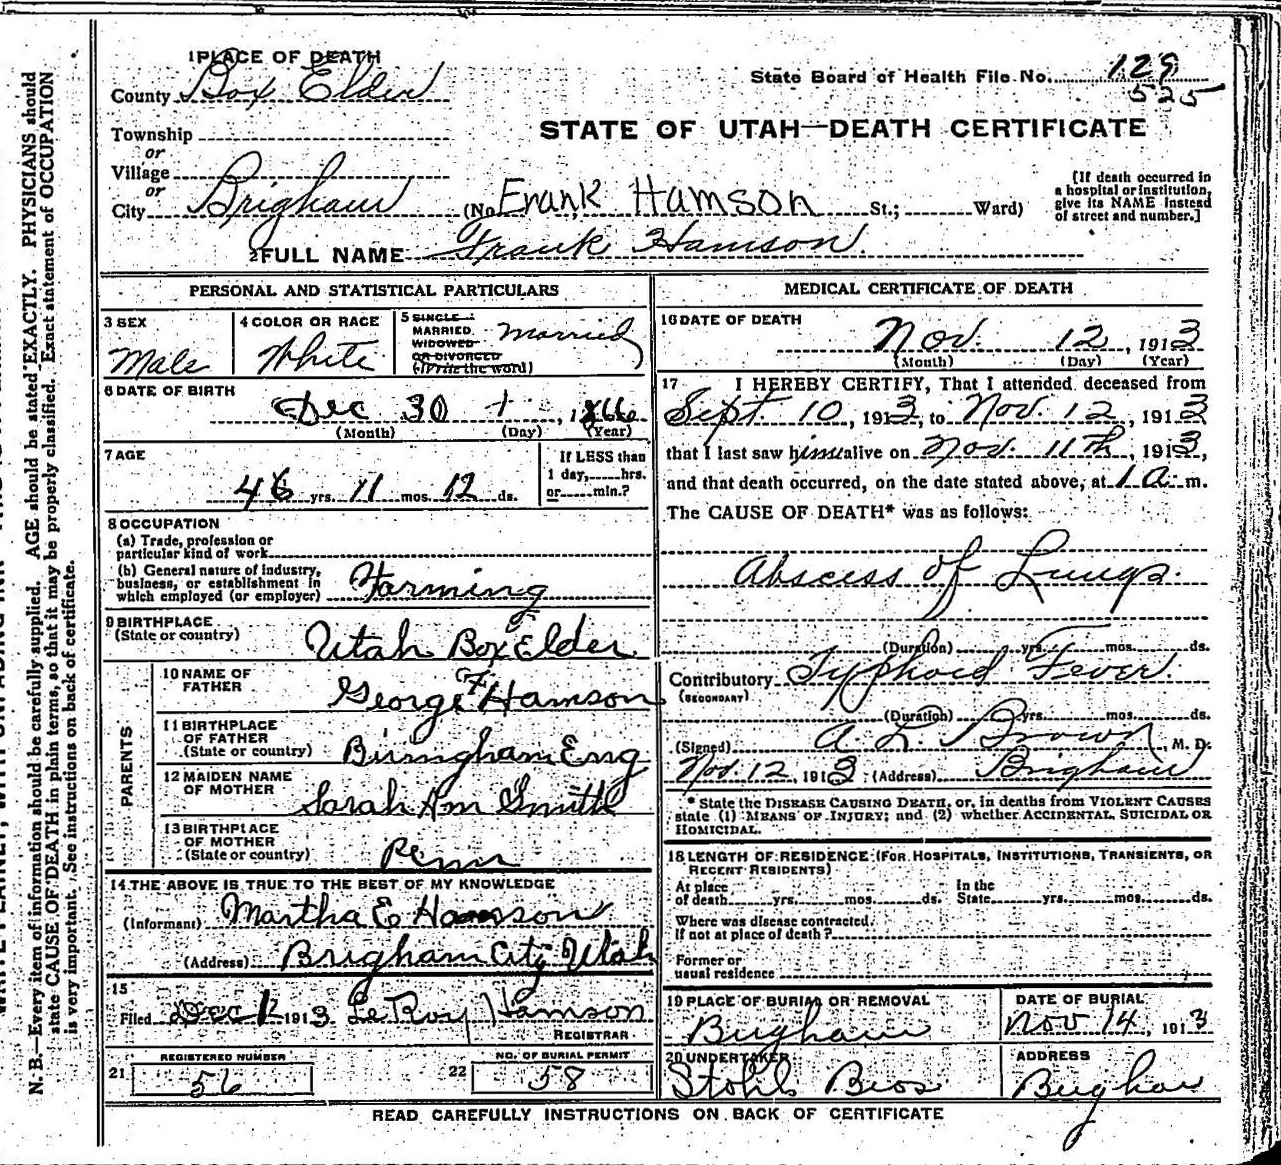 N. B.—Every item of information should be carefully supplied. AGE should be stated EXACTLY. PHYSICIANS should
state CAUSE OF DEATH in plain terms, so that it may be properly classified. Exact statement of OCCUPATION
is very important. See instructions on back of certificate.
1 PLACE OF DEATH
County Box Elder
State Board of Health File No. 129
525
Township
or
Village
or
City Brigham
STATE OF UTAH—DEATH CERTIFICATE
(No. Frank Hamson St.; Ward)
[If death occurred in
a hospital or institution,
give its NAME instead
of street and number.]
2 FULL NAME Frank Hamson
PERSONAL AND STATISTICAL PARTICULARS
3 SEX
Male
4 COLOR OR RACE
White
5 SINGLE
MARRIED
WIDOWED
OR DIVORCED
(Write the word)
Married
6 DATE OF BIRTH
Dec 30, 1866
(Month) (Day) (Year)
7 AGE
46 yrs. 11 mos. 12 ds.
If LESS than
1 day, hrs.
or min.?
8 OCCUPATION
(a) Trade, profession or
particular kind of work
(b) General nature of industry,
business, or establishment in
which employed (or employer) Farming
9 BIRTHPLACE
(State or country) Utah Box Elder
PARENTS
10 NAME OF
FATHER George F Hamson
11 BIRTHPLACE
OF FATHER
(State or country) Birmgham Eng
12 MAIDEN NAME
OF MOTHER Sarah Ann Smith
13 BIRTHPLACE
OF MOTHER
(State or country) Penn
14 THE ABOVE IS TRUE TO THE BEST OF MY KNOWLEDGE
(Informant) Martha E Hamson
(Address) Brigham City Utah
15
Filed Dec 12 1913 LeRoy Hamson
REGISTRAR
21 REGISTERED NUMBER
56
22 NO. OF BURIAL PERMIT
58
MEDICAL CERTIFICATE OF DEATH
16 DATE OF DEATH
Nov. 12, 1913
(Month) (Day) (Year)
17 I HEREBY CERTIFY, That I attended deceased from
Sept. 10, 1913, to Nov. 12, 1913
that I last saw him alive on Nov. 11th, 1913,
and that death occurred, on the date stated above, at 1 a. m.
The CAUSE OF DEATH* was as follows:
Abscess of Lungs.
(Duration) yrs. mos. ds.
Contributory Typhoid Fever.
(SECONDARY)
(Duration) yrs. mos. ds.
(Signed) A. L. Brown, M. D.
Nov 12, 1913 (Address) Brigham
* State the DISEASE CAUSING DEATH, or, in deaths from VIOLENT CAUSES
state (1) MEANS OF INJURY; and (2) whether ACCIDENTAL, SUICIDAL OR
HOMICIDAL.
18 LENGTH OF RESIDENCE (FOR HOSPITALS, INSTITUTIONS, TRANSIENTS, OR
RECENT RESIDENTS)
At place
of death yrs. mos. ds.
In the
State yrs. mos. ds.
Where was disease contracted
if not at place of death?
Former or
usual residence
19 PLACE OF BURIAL OR REMOVAL
Brigham
DATE OF BURIAL
Nov 14, 1913
20 UNDERTAKER
Stohls Bros
ADDRESS
Brigham
READ CAREFULLY INSTRUCTIONS ON BACK OF CERTIFICATE